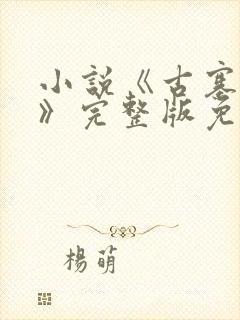 小說《古塞
》完整版免
楊萌